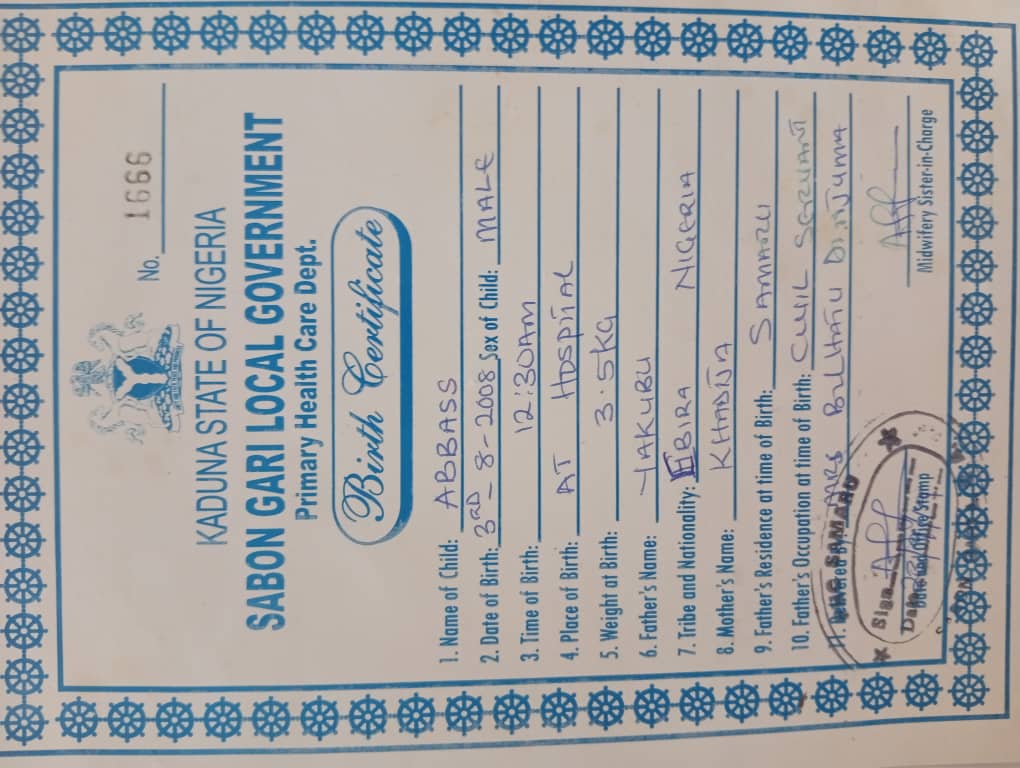 No. 1666
KADUNA STATE OF NIGERIA
SABON GARI LOCAL GOVERNMENT
Primary Health Care Dept.
Birth Certificate
1. Name of Child: ABBASS
2. Date of Birth: 3RD - 8 - 2008 Sex of Child: MALE
3. Time of Birth: 12:30AM
4. Place of Birth: AT HOSPITAL
5. Weight at Birth: 3.5KG
6. Father's Name: YAKUBU
7. Tribe and Nationality: EBIRA NIGERIA
8. Mother's Name: KHADIJA
9. Father's Residence at time of Birth: SAMARU
10. Father's Occupation at time of Birth: CIVIL SERVANT
11. Delivered By: MRS DANJUMA
SAMARU
Sign
Date
Midwifery Sister-in-Charge